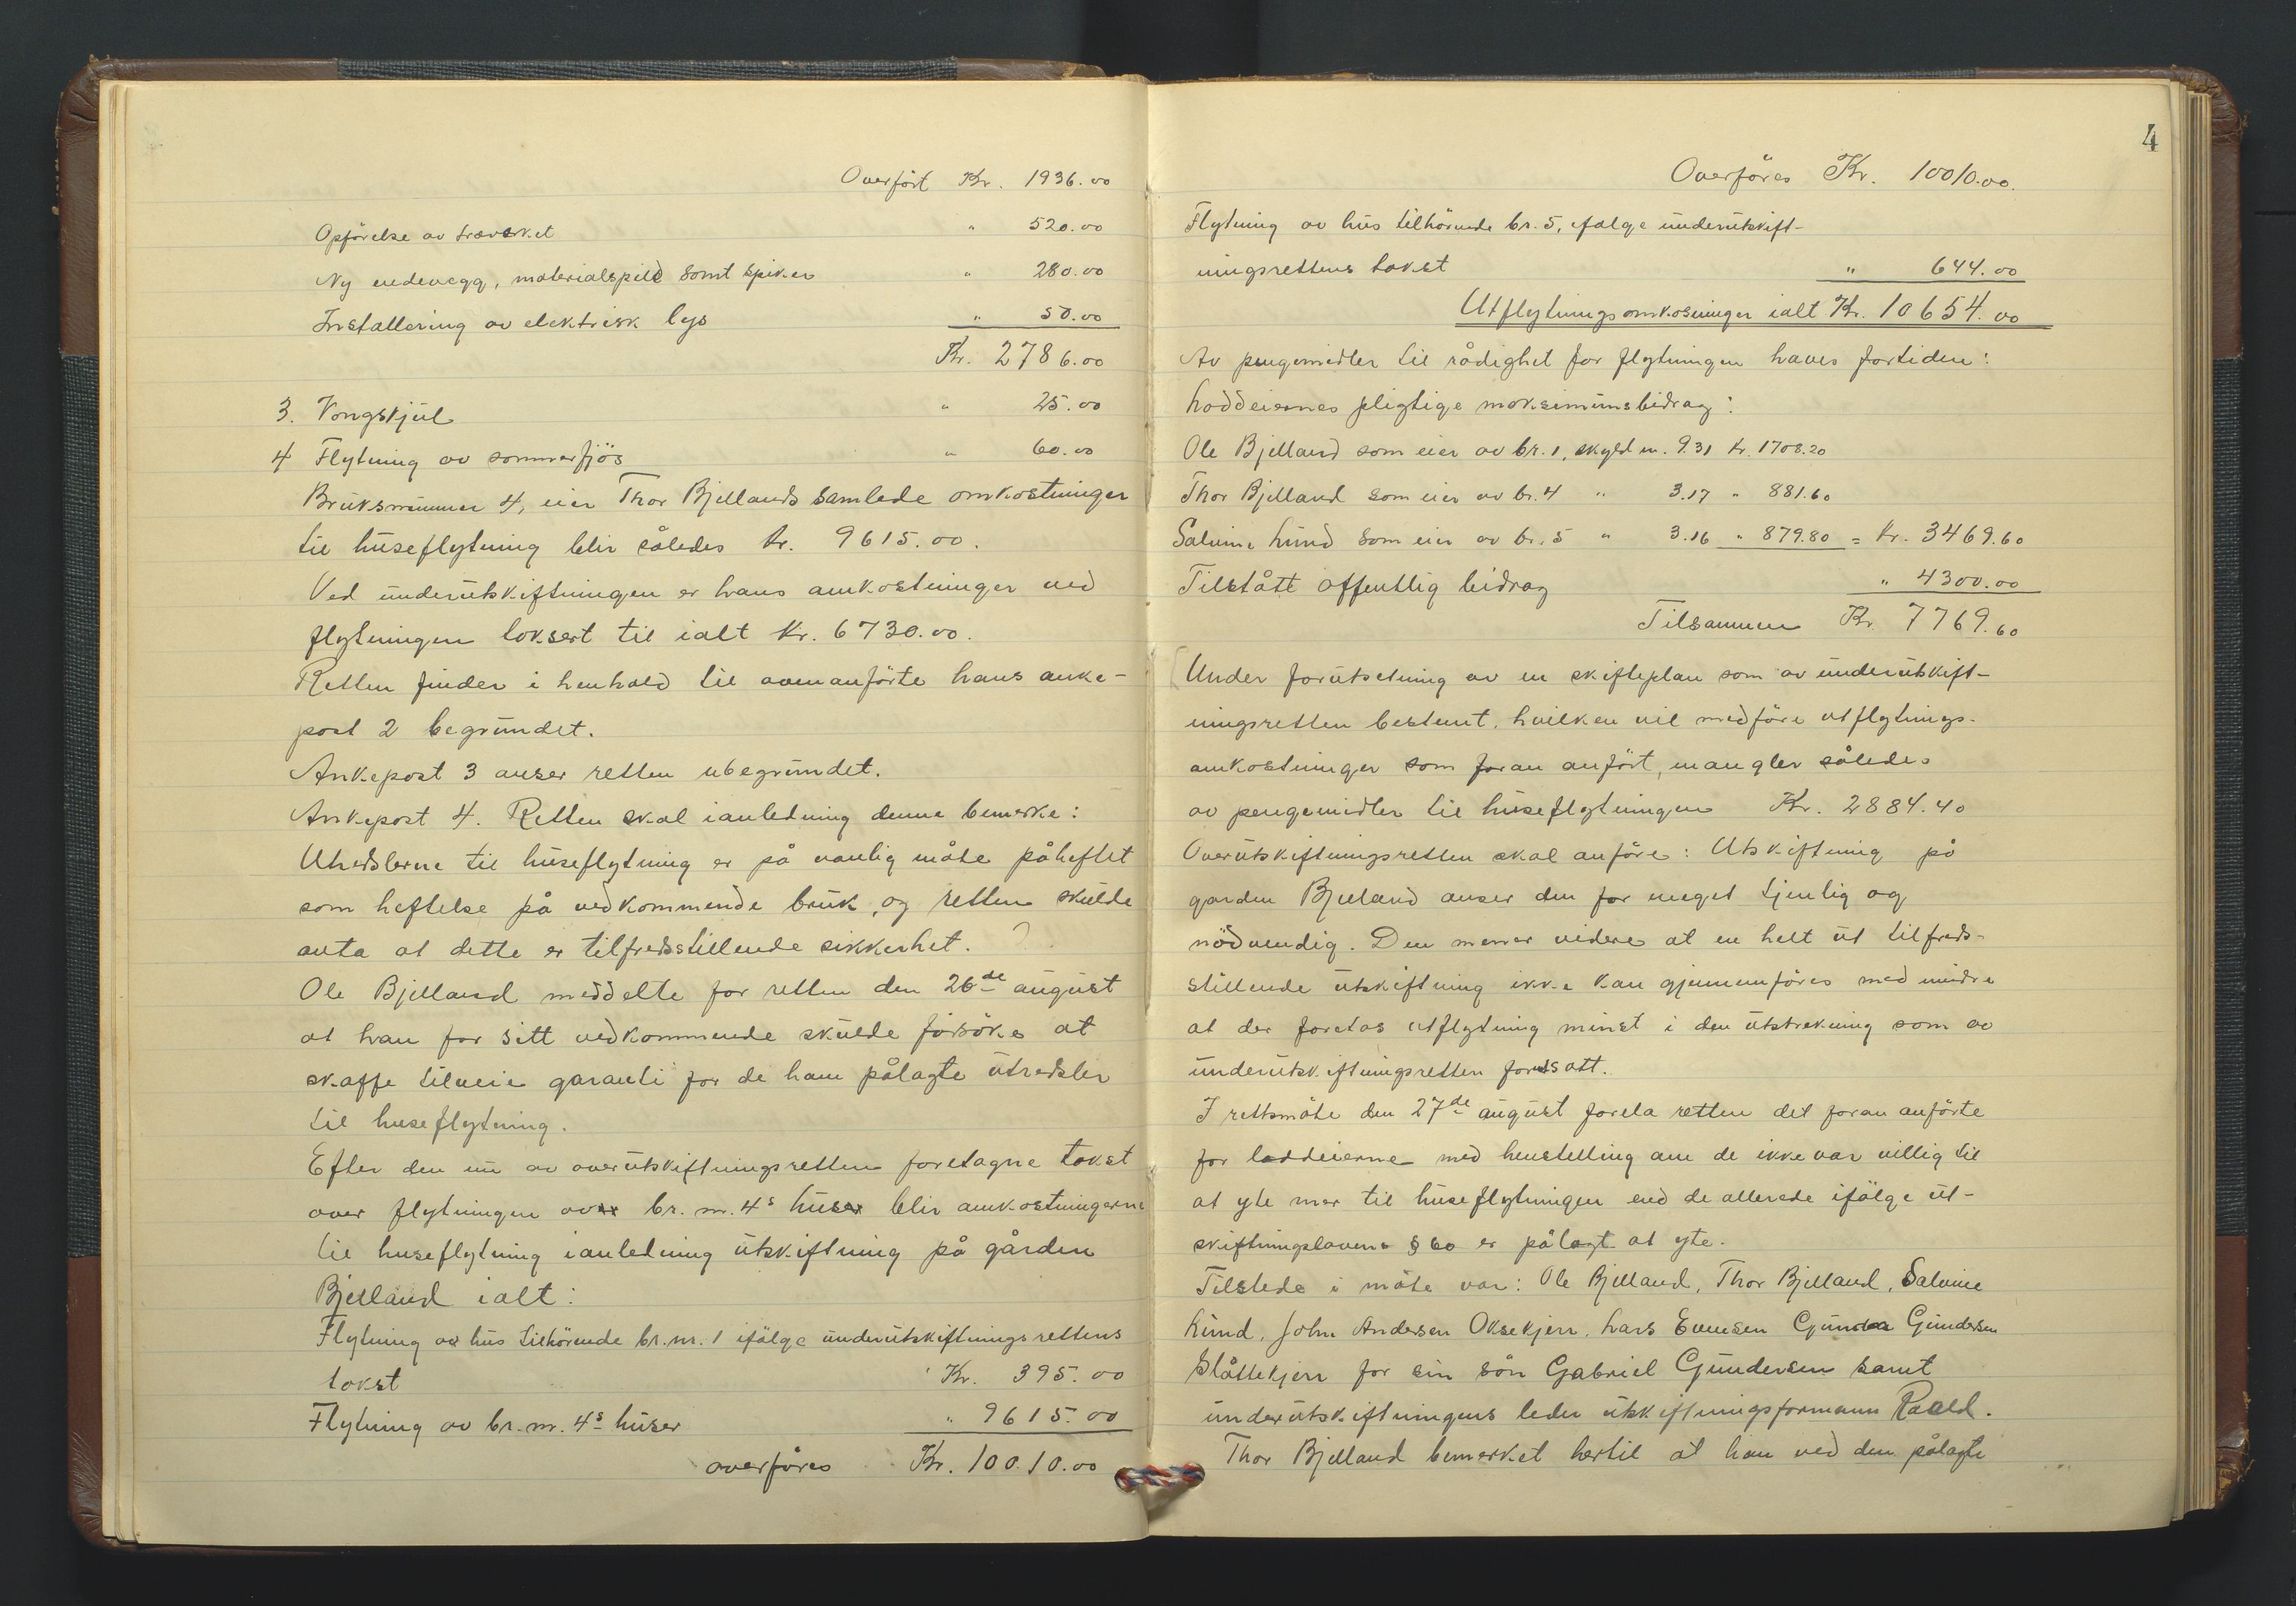 Overført Kr. 1936.00
Opførelse av træverket " 520.00
Ny endevegg, materialspild samt spiker " 280.00
Installering av elektrisk lys " 50.00
Kr. 2786.00
3. Vongskjul " 25.00
4 Flytning av sommerfjös " 60.00
Bruksnummer 4, eier Thor Bjellands samlede omkostninger
til huseflytning blir således kr. 9615.00.
Ved underutskiftningen er hans omkostninger ved
flytningen taksert til ialt kr. 6730.00.
Retten finder i henhold til ovenanførte hans anke-
post 2 begrundet.
Ankepost 3 anser retten ubegrundet.
Ankepost 4. Retten skal ianledning denne bemerke:
Utredslerne til huseflytning er på vanlig måte påheftet
som heftelse på vedkommende bruk, og retten skulde
anta at dette er tilfredsstillende sikkerhet.
Ole Bjelland meddelte for retten den 26de august
at han for sitt vedkommende skulde forsøke at
skaffe tilveie garanti for de ham pålagte utredsler
til huseflytning.
Efter den nu av overutskiftningsretten foretagne takst
over flytningen av br. nr. 4s huser blir omkostningerne
til huseflytning ianledning utskiftning på gården
Bjelland ialt:
Flytning av hus tilhørende br. nr. 1 ifølge underutskiftningsrettens
takst Kr. 395.00
Flytning av br. nr. 4s huser " 9615.00
overføres Kr. 10010.00
4
Overføres Kr. 10010.00.
Flytning av hus tilhørende br. 5, ifølge underutskift-
ningsrettens takst " 644.00
Utflytningsomkosninger ialt Kr. 10654.00
Av pengemidler til rådighet for flytningen haves fortiden:
Loddeiernes pligtige maksimumsbidrag:
Ole Bjelland som eier av br. 1, skyld m. 9.31 kr. 1708.20
Thor Bjelland som eier av br. 4 " 3.17 " 881.60
Salvine Lund som eier av br. 5 " 3.16 " 879.80 = kr. 3469.60
Tilstått offentlig bidrag " 4300.00
Tilsammen Kr. 7769.60
Under forutsetning av en skifteplan som av underutskift-
ningsretten bestemt, hvilken vil medføre utflytnings-
omkostninger som foran anført, mangler således
av pengemidler til huseflytningen Kr. 2884.40
Overutskiftningsretten skal anføre: Utskiftning på
garden Bjelland anser den for meget tjenlig og
nødvendig. Den mener videre at en helt ut tilfreds-
stillende utskiftning ikke kan gjennemføres med mindre
at der foretas utflytning minst i den utstrekning som av
underutskiftningsretten forutsatt.
I rettsmøte den 27de august forela retten det foran anførte
for loddeierne med henstelling om de ikke var villig til
at yte mer til huseflytningen end de allerede ifølge ut-
skiftningslovens § 60 er pålagt at yte.
Tilstede i møte var: Ole Bjelland, Thor Bjelland, Salvine
Lund, John Andersen Oksekjerr, Lars Evensen Gundersen
Slåttekjerr for sin søn Gabriel Gundersen samt
underutskiftningens leder utskiftningsformann Roald.
Thor Bjelland bemerket hertil at han ved den pålagte